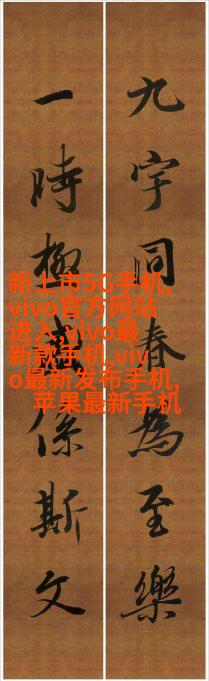 九宇同春為至樂
一時極係斯文
新上市5G手机,
vivo官方网站
进入,vivo最
新款手机,viv
o最新发布手机,
苹果最新手机